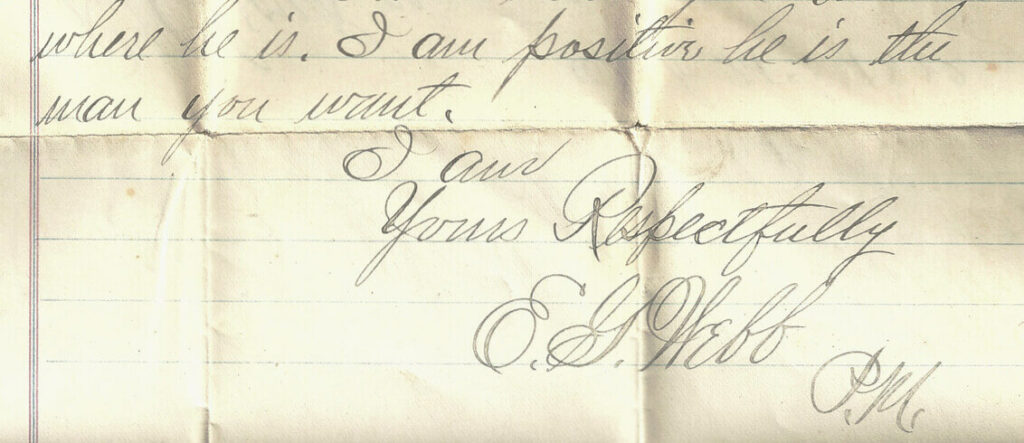 where he is. I am positive he is the
man you want.
I am
Yours Respectfully
E. G. Webb
P.M.